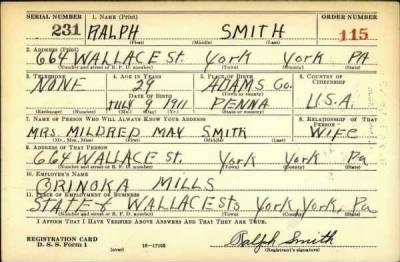 SERIAL NUMBER 1. NAME (Print) ORDER NUMBER
231 RALPH SMITH 115
(First) (Middle) (Last)
2. ADDRESS (Print)
664 WALLACE St. York York PA
(Number and street or R. F. D. number) (Town) (County) (State)
3. TELEPHONE 4. AGE IN YEARS 5. PLACE OF BIRTH 6. COUNTRY OF CITIZENSHIP
NONE 29 ADAMS Co.
DATE OF BIRTH (Town or county)
JULY 9 1911 PENNA U.S.A.
(Exchange) (Number) (Mo.) (Day) (Yr.) (State or country)
7. NAME OF PERSON WHO WILL ALWAYS KNOW YOUR ADDRESS 8. RELATIONSHIP OF THAT PERSON
MRS MILDRED MAY SMITH WIFE
(Mr., Mrs., Miss) (First) (Middle) (Last)
9. ADDRESS OF THAT PERSON
664 WALLACE St. York York Pa
(Number and street or R. F. D. number) (Town) (County) (State)
10. EMPLOYER'S NAME
ORINOKA MILLS
11. PLACE OF EMPLOYMENT OR BUSINESS
STATE & WALLACE Sts York York, Pa
(Number and street or R. F. D. number) (Town) (County) (State)
I AFFIRM THAT I HAVE VERIFIED ABOVE ANSWERS AND THAT THEY ARE TRUE.
REGISTRATION CARD
D. S. S. Form 1 (over) 16-17105 Ralph Smith
(Registrant's signature)